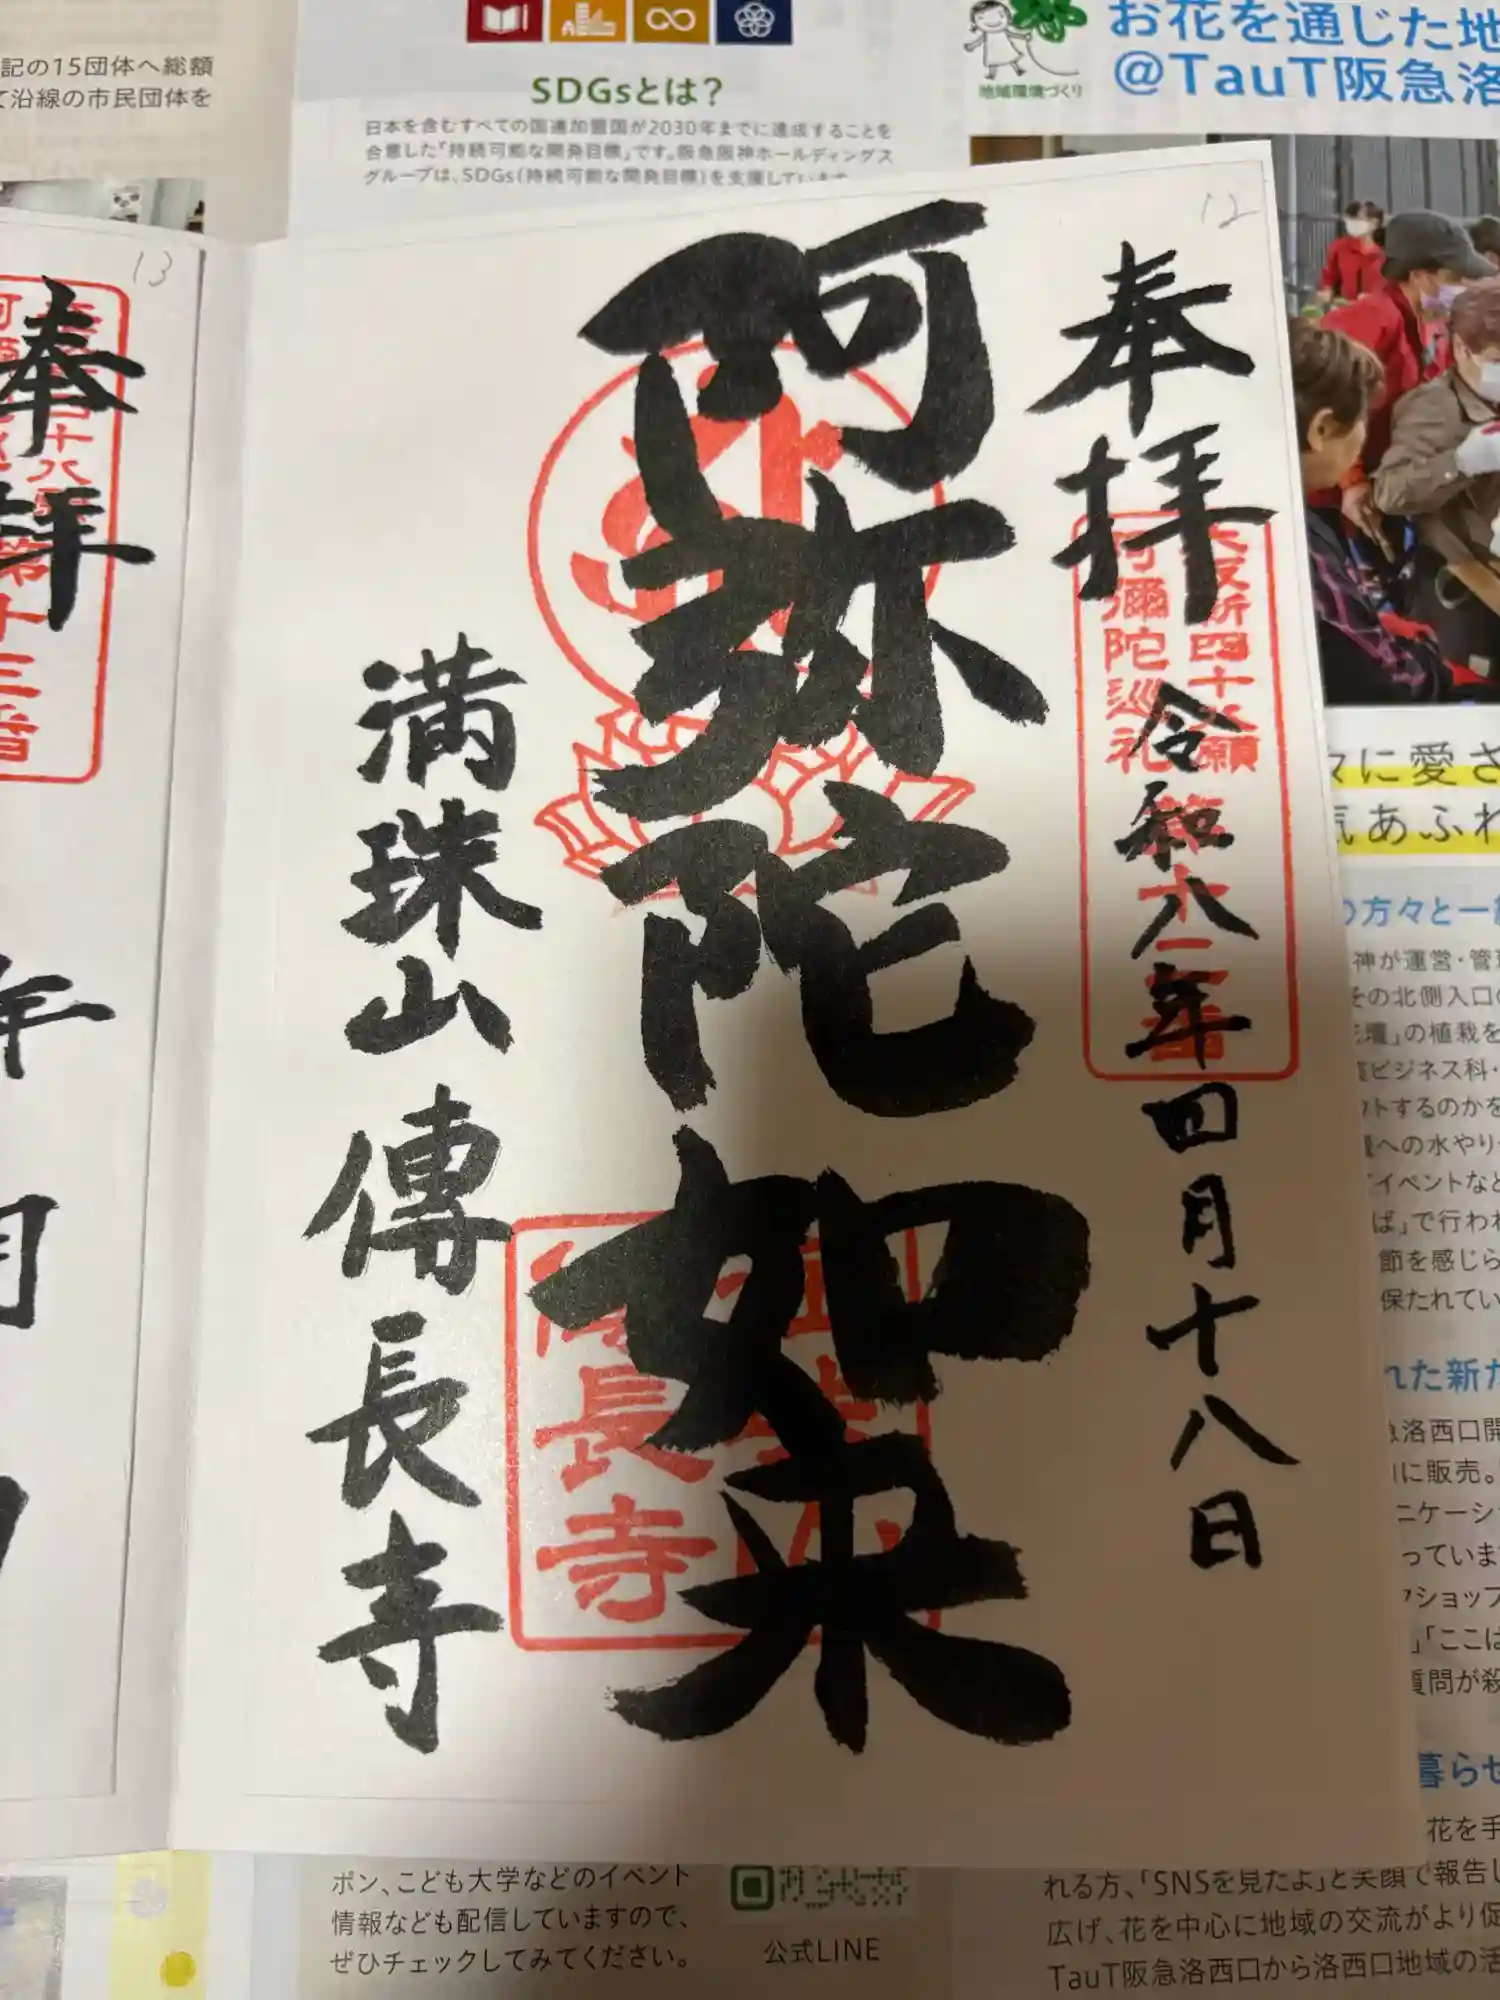 記の15団体へ総額
て沿線の市民団体を
SDGsとは？
日本を含むすべての国連加盟国が2030年までに達成することを
合意した「持続可能な開発目標」です。阪急阪神ホールディングス
グループは、SDGs（持続可能な開発目標）を支援しています
地域環境づくり
お花を通じた地
@TauT阪急洛
12
奉拝
令和八年四月十八日
四十八願
阿彌陀巡礼
阿弥陀如来
長寺
満珠山 傳長寺
13
奉拝
十八
第十三番
年
月
々に愛さ
気あふれ
の方々と一
神が運営・管
その北側入口の
花壇」の植栽を
ビジネス科・
ウトするのかを
への水やり
イベントなど
ば」で行われ
節を感じら
保たれてい
れた新た
急洛西口開
に販売。
ニケーシ
っていま
クショップ
」「ここは
質問が殺
暮らせ
花を手
れる方、「SNSを見たよ」と笑顔で報告し
広げ、花を中心に地域の交流がより促
TauT阪急洛西口から洛西口地域の活
ポン、こども大学などのイベント
情報なども配信していますので、
ぜひチェックしてみてください。
公式LINE